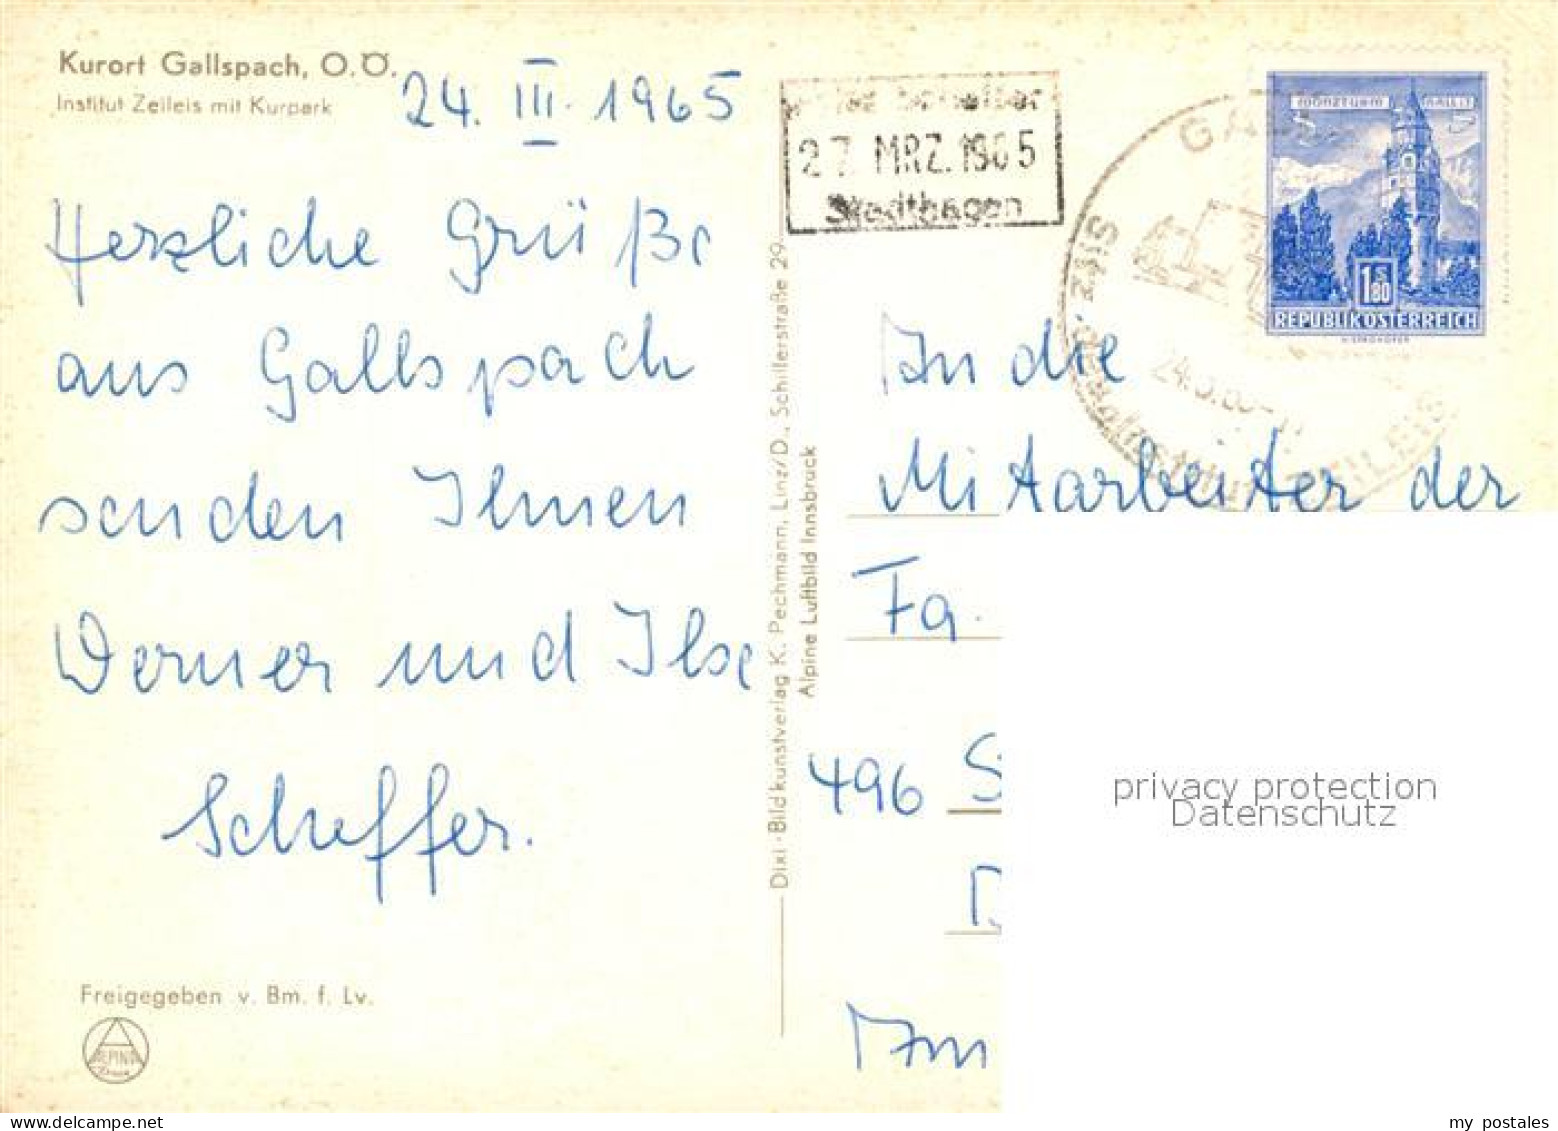 Kurort Gallspach, O.Ö.
Institut Zeileis mit Kurpark
24. III. 1965
Herzliche Grüße
aus Gallspach
senden Ihnen
Werner und Ilse
Scheffer.
Freigegeben v. Bm. f. Lv.
ALPINA
Druck
Dixi-Bildkunstverlag K. Pechmann, Linz/D., Schillerstraße 29
Alpine Luftbild Innsbruck
27. MRZ. 1965
Stadthagen
MÜNZTURM HALL I. T.
S 1.80
REPUBLIK ÖSTERREICH
Sitz des
ZEILEIS
An die
Mitarbeiter der
Fa.
496 S
Am
privacy protection
Datenschutz
my postales